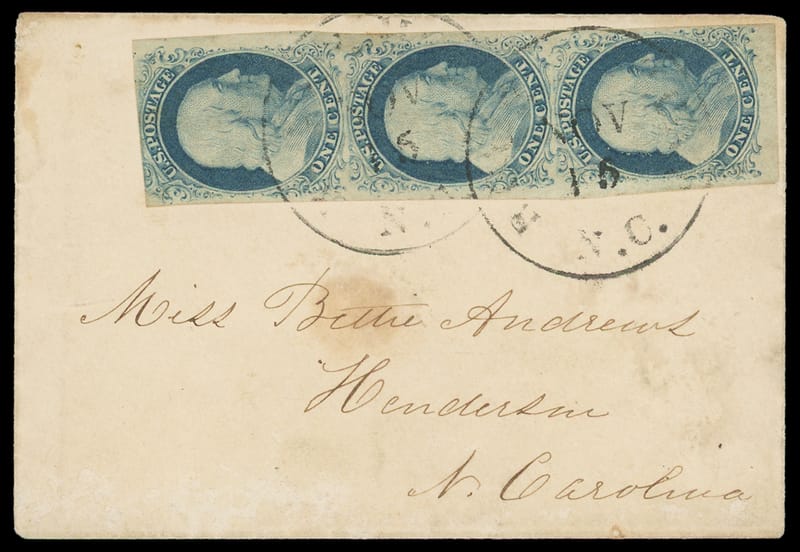 U.S. POSTAGE ONE CENT
U.S. POSTAGE ONE CENT
U.S. POSTAGE ONE CENT
NOV
15
N.C.
Miss Bettie Andrews
Henderson
N. Carolina